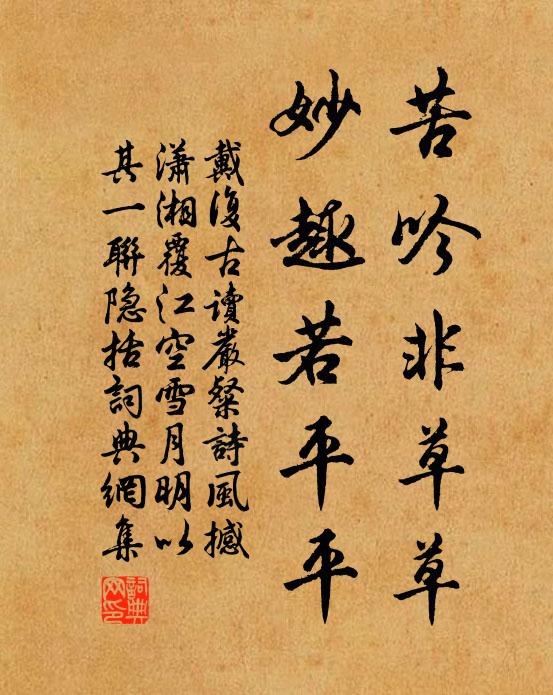 苦吟非草草
妙趣若平平
戴復古讀嚴粲詩風撼
瀟湘覆江空雪月明以
其一聯隐括詞典網集
詞典网印